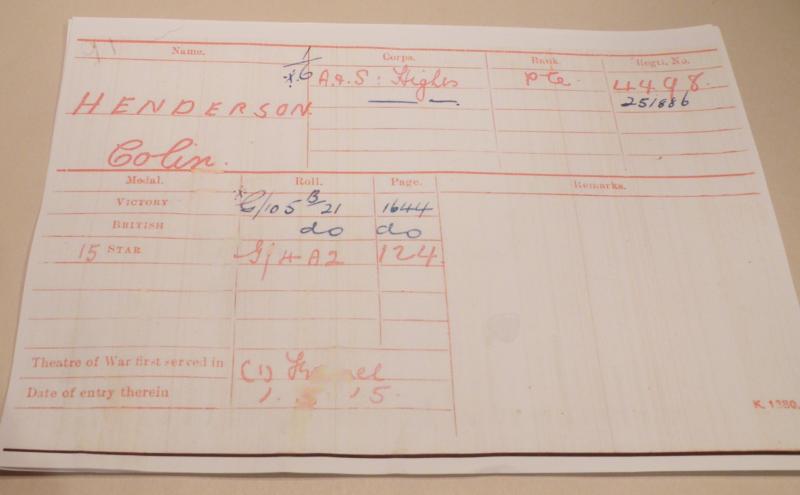 Name. Corps. Rank. Regtl. No.
HENDERSON A.&S: Highrs Pte. 4498.
251886
Colin.
Medal. Roll. Page. Remarks.
VICTORY 105 B/21 1644
BRITISH do do
15 STAR G/4 A2 124.
Theatre of War first served in (1) France
Date of entry therein 1. 5. 15.
K. 1380.